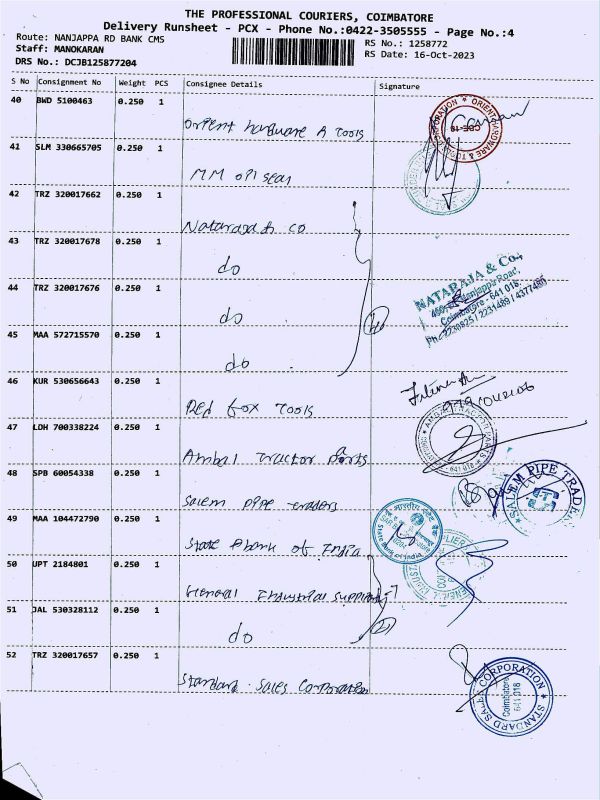 THE PROFESSIONAL COURIERS, COIMBATORE
Delivery Runsheet - PCX - Phone No.:0422-3505555 - Page No.:4
Route: NANJAPPA RD BANK CMS
RS No.: 1258772
Staff: MANOKARAN
RS Date: 16-Oct-2023
DRS No.: DCJB125877204
S No Consignment No Weight PCS Consignee Details Signature
40 BWD 5100463 0.250 1
Orient hardware & Tools
41 SLM 330665705 0.250 1
MM oil seal
42 TRZ 320017662 0.250 1
Nataraja & co
43 TRZ 320017678 0.250 1
do
44 TRZ 320017676 0.250 1
do
NATARAJA & Co.,
Nanjappa Road,
Coimbatore - 641 018.
45 MAA 572715570 0.250 1
do
46 KUR 530656643 0.250 1
Red fox Tools
47 LDH 700338224 0.250 1
Ambal Tractor parts
48 SPB 60054338 0.250 1
Salem pipe traders
SALEM PIPE TRADERS
49 MAA 104472790 0.250 1
State bank of India
भारतीय स्टेट बैंक
State Bank of India
50 UPT 2184801 0.250 1
General Industrial suppliers
51 JAL 530328112 0.250 1
do
52 TRZ 320017657 0.250 1
Standard Sales Corporation
STANDARD SALES CORPORATION
Coimbatore
641 018